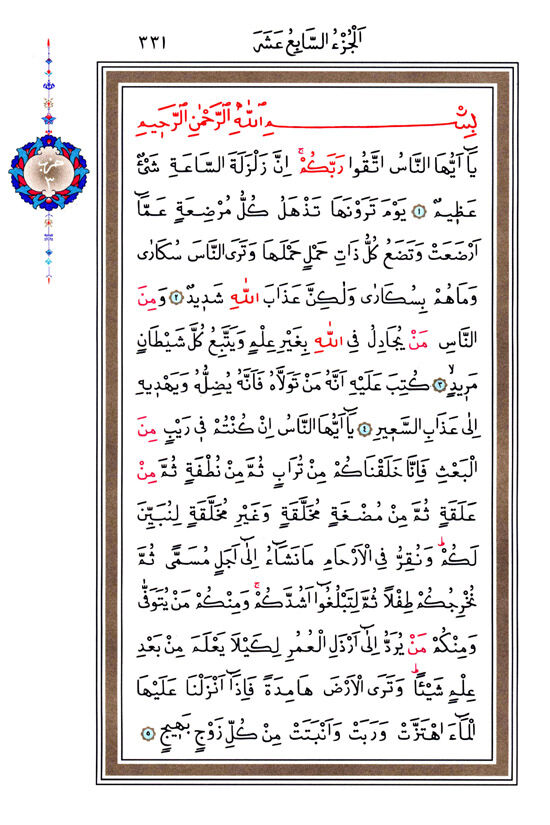 اَلْجُزْءُ السَّابِعُ عَشَرَ
٣٣١
حزب
٣
بِسْمِ اللّٰهِ الرَّحْمٰنِ الرَّحٖيمِ
يَٓا اَيُّهَا النَّاسُ اتَّقُوا رَبَّكُمْۚ اِنَّ زَلْزَلَةَ السَّاعَةِ شَيْءٌ
عَظٖيمٌ ﴿١﴾ يَوْمَ تَرَوْنَهَا تَذْهَلُ كُلُّ مُرْضِعَةٍ عَمَّٓا
اَرْضَعَتْ وَتَضَعُ كُلُّ ذَاتِ حَمْلٍ حَمْلَهَا وَتَرَى النَّاسَ سُكَارٰى
وَمَا هُمْ بِسُكَارٰى وَلٰكِنَّ عَذَابَ اللّٰهِ شَدٖيدٌ ﴿٢﴾ وَمِنَ
النَّاسِ مَنْ يُجَادِلُ فِي اللّٰهِ بِغَيْرِ عِلْمٍ وَيَتَّبِعُ كُلَّ شَيْطَانٍ
مَرٖيدٍۙ ﴿٣﴾ كُتِبَ عَلَيْهِ اَنَّهُ مَنْ تَوَلَّاهُ فَاَنَّهُ يُضِلُّهُ وَيَهْدٖيهِ
اِلٰى عَذَابِ السَّعٖيرِ ﴿٤﴾ يَٓا اَيُّهَا النَّاسُ اِنْ كُنْتُمْ فٖي رَيْبٍ مِنَ
الْبَعْثِ فَاِنَّا خَلَقْنَاكُمْ مِنْ تُرَابٍ ثُمَّ مِنْ نُطْفَةٍ ثُمَّ مِنْ
عَلَقَةٍ ثُمَّ مِنْ مُضْغَةٍ مُخَلَّقَةٍ وَغَيْرِ مُخَلَّقَةٍ لِنُبَيِّنَ
لَكُمْۜ وَنُقِرُّ فِي الْاَرْحَامِ مَا نَشَٓاءُ اِلٰٓى اَجَلٍ مُسَمًّى ثُمَّ
نُخْرِجُكُمْ طِفْلاً ثُمَّ لِتَبْلُغُٓوا اَشُدَّكُمْۚ وَمِنْكُمْ مَنْ يُتَوَفّٰى
وَمِنْكُمْ مَنْ يُرَدُّ اِلٰٓى اَرْذَلِ الْعُمُرِ لِكَيْلَا يَعْلَمَ مِنْ بَعْدِ
عِلْمٍ شَيْـًٔاۜ وَتَرَى الْاَرْضَ هَامِدَةً فَاِذَٓا اَنْزَلْنَا عَلَيْهَا
الْمَٓاءَ اهْتَزَّتْ وَرَبَتْ وَاَنْبَتَتْ مِنْ كُلِّ زَوْجٍ بَهٖيجٍ ﴿٥﴾